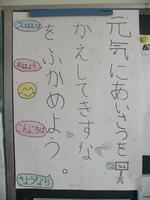 元気にあいさつを
かえしてきずな
をふかめよう。
こんばんは
おはよう
こんにちは
さようなら